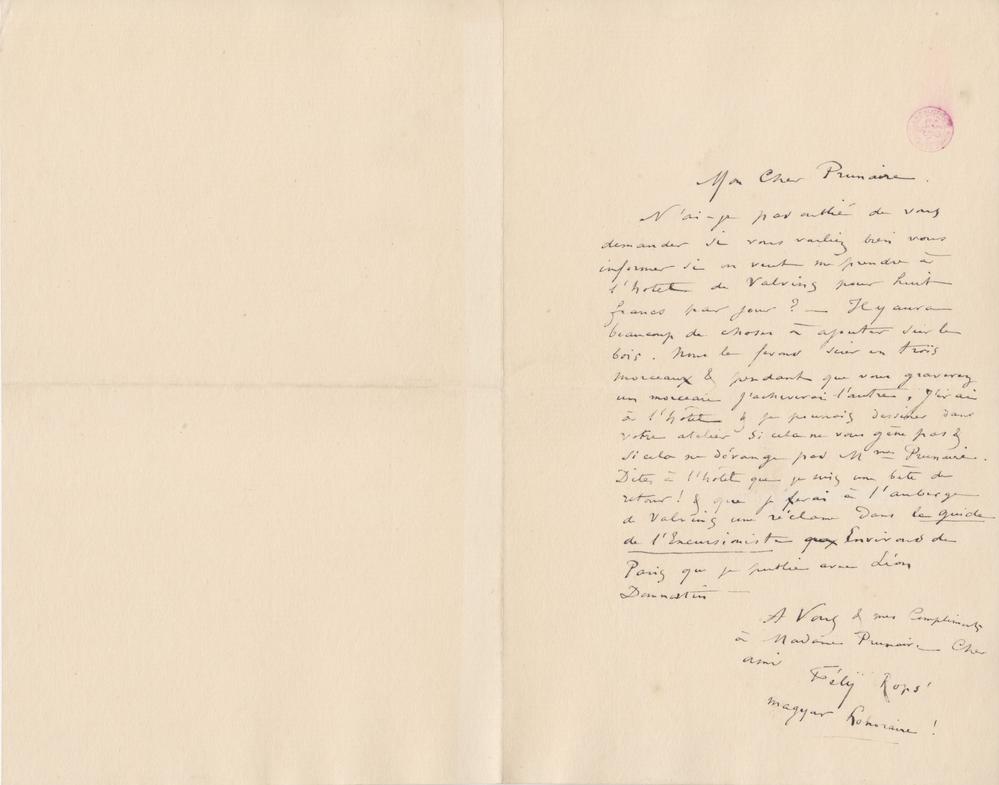 Mon Cher Prunaire.
N'ai-je pas oublié de vous
demander si vous vouliez bien vous
informer si on veut me prendre à
l'hotel de Valvins pour huit
francs par jour ? — Il y aura
beaucoup de choses à ajouter sur le
bois. Nous le ferons scier en trois
morceaux & pendant que vous graverez
un morceau j'acheverai l'autre, J'irai
à l'hôtel & je pourrais dessiner dans
votre atelier si cela ne vous gêne pas &
si cela ne dérange pas Mme Prunaire.
Dites à l'hôtel que je suis une bête de
retour ! & que je ferai à l'auberge
de Valvins une réclame dans le guide
de l'Excursioniste aux Environs de
Paris que je publie avec Léon
Dommartin
A Vous & mes Compliments
à Madame Prunaire Cher
ami
Fély Rops
magyar honoraire !